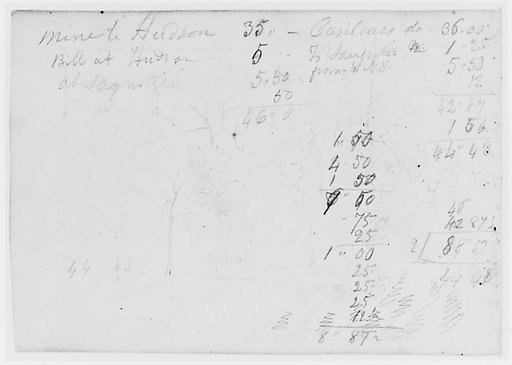 Mine to Hudson 35 " –
Bill at Hudson 5
at Saugerties 5.50
50
46 . 0
Casilears do 36.00
To Saugerties 1.25
from N.Y. 5.50
12
42.87
1 56
44.43
1. 50
4 50
1 50
7 " 50
75
25
1 " 00
25
25
25
12½
8 " 87½
46
42 87½
2/ 88 87
44 43
44 43